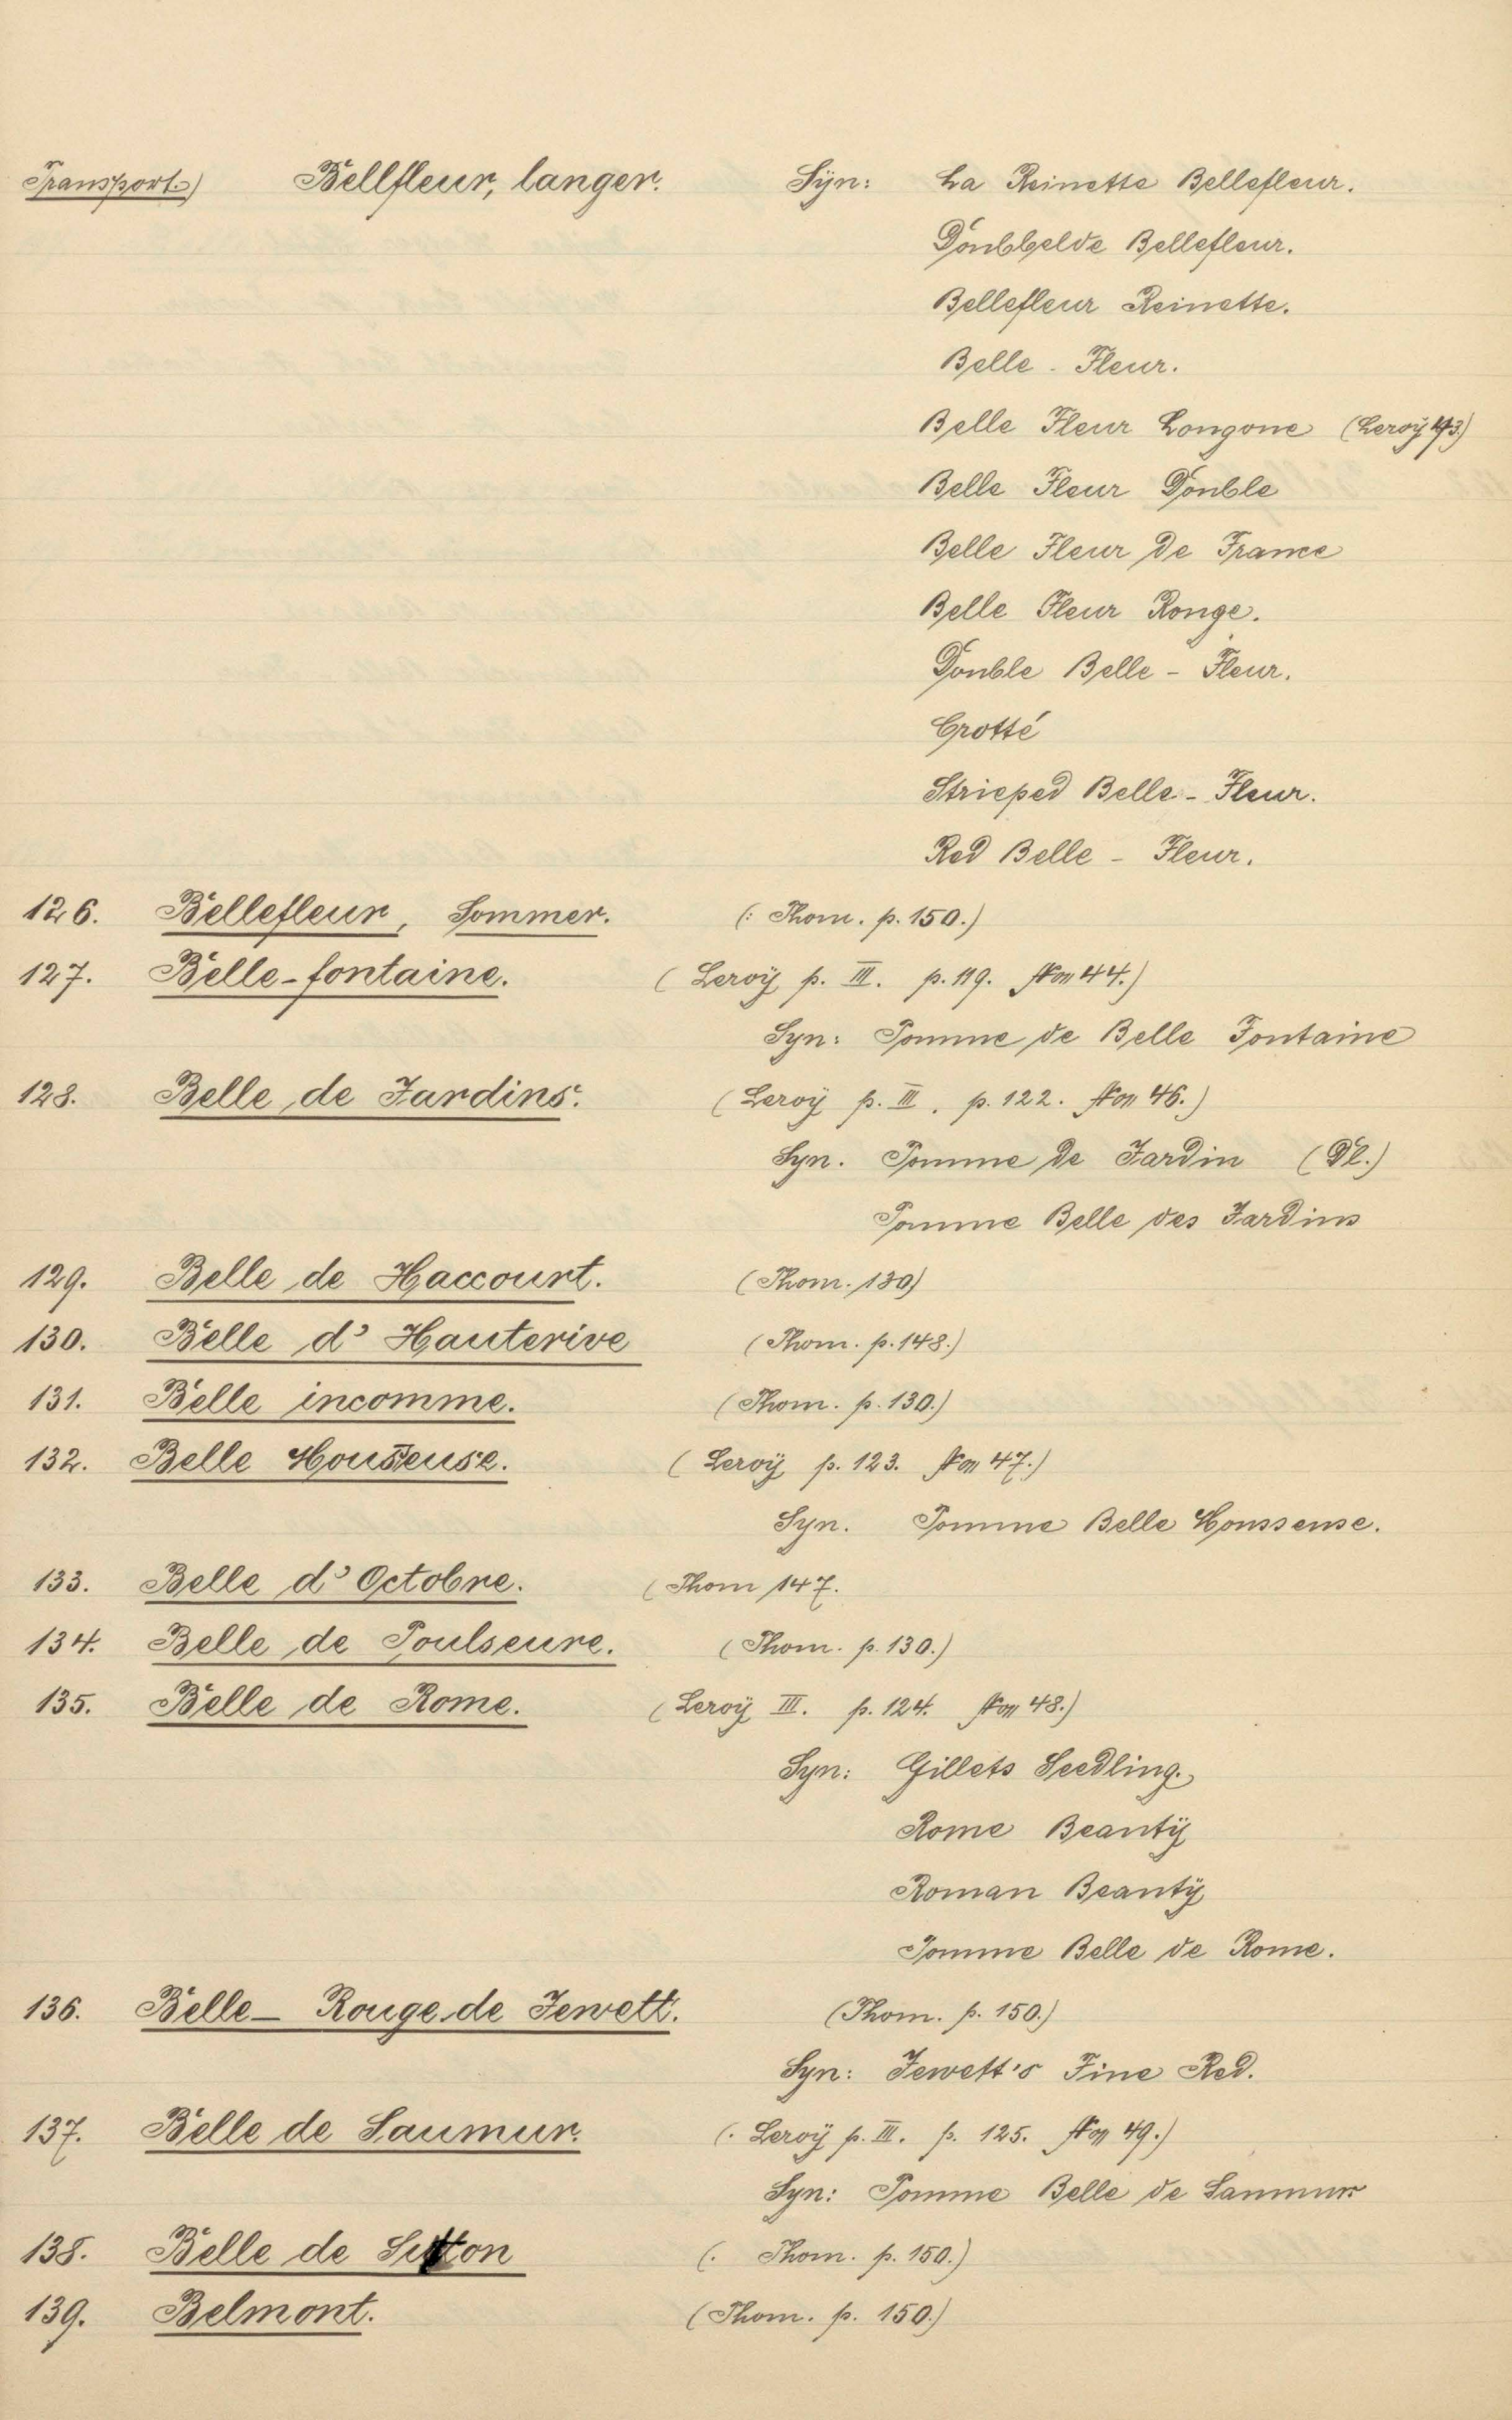 Transport.) Bellfleur, langer. Syn: La Reinette Bellefleur.
Doubbelde Bellefleur.
Bellefleur Reinette.
Belle - Fleur.
Belle Fleur Longone (Leroÿ 43.)
Belle Fleur Double
Belle Fleur de France
Belle Fleur Rouge.
Double Belle - Fleur.
Grotté
Strieped Belle - Fleur.
Red Belle - Fleur.
126. Bellefleur, Sommer. (: Thom. p. 150.)
127. Belle-fontaine. (Leroÿ p. III. p. 119. Non 44.)
Syn: Pomme de Belle Fontaine
128. Belle de Jardins. (Leroÿ p. III. p. 122. Non 46.)
Syn. Pomme de Jardin (Dl.)
Pomme Belle des Jardins
129. Belle de Haccourt. (Thom. 130)
130. Belle d' Hauterive (Thom. p. 148.)
131. Belle incomme. (Thom. p. 130.)
132. Belle Housseuse. (Leroÿ p. 123. Non 47.)
Syn. Pomme Belle Housseuse.
133. Belle d' Octobre. (Thom 147.
134. Belle de Poulseure. (Thom. p. 130.)
135. Belle de Rome. (Leroÿ III. p. 124. Non 48.)
Syn: Gillets Seedling.
Rome Beautÿ
Roman Beautÿ
Pomme Belle de Rome.
136. Belle - Rouge de Jewett. (Thom. p. 150.)
Syn: Jewett's Fine Red.
137. Belle de Saumur. (. Leroÿ p. III. p. 125. Non 49.)
Syn: Pomme Belle de Saumur
138. Belle de Sutton (. Thom. p. 150.)
139. Belmont. (Thom. p. 150.)